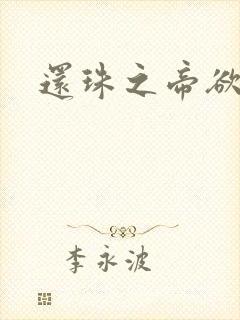 還珠之帝欲
李永波